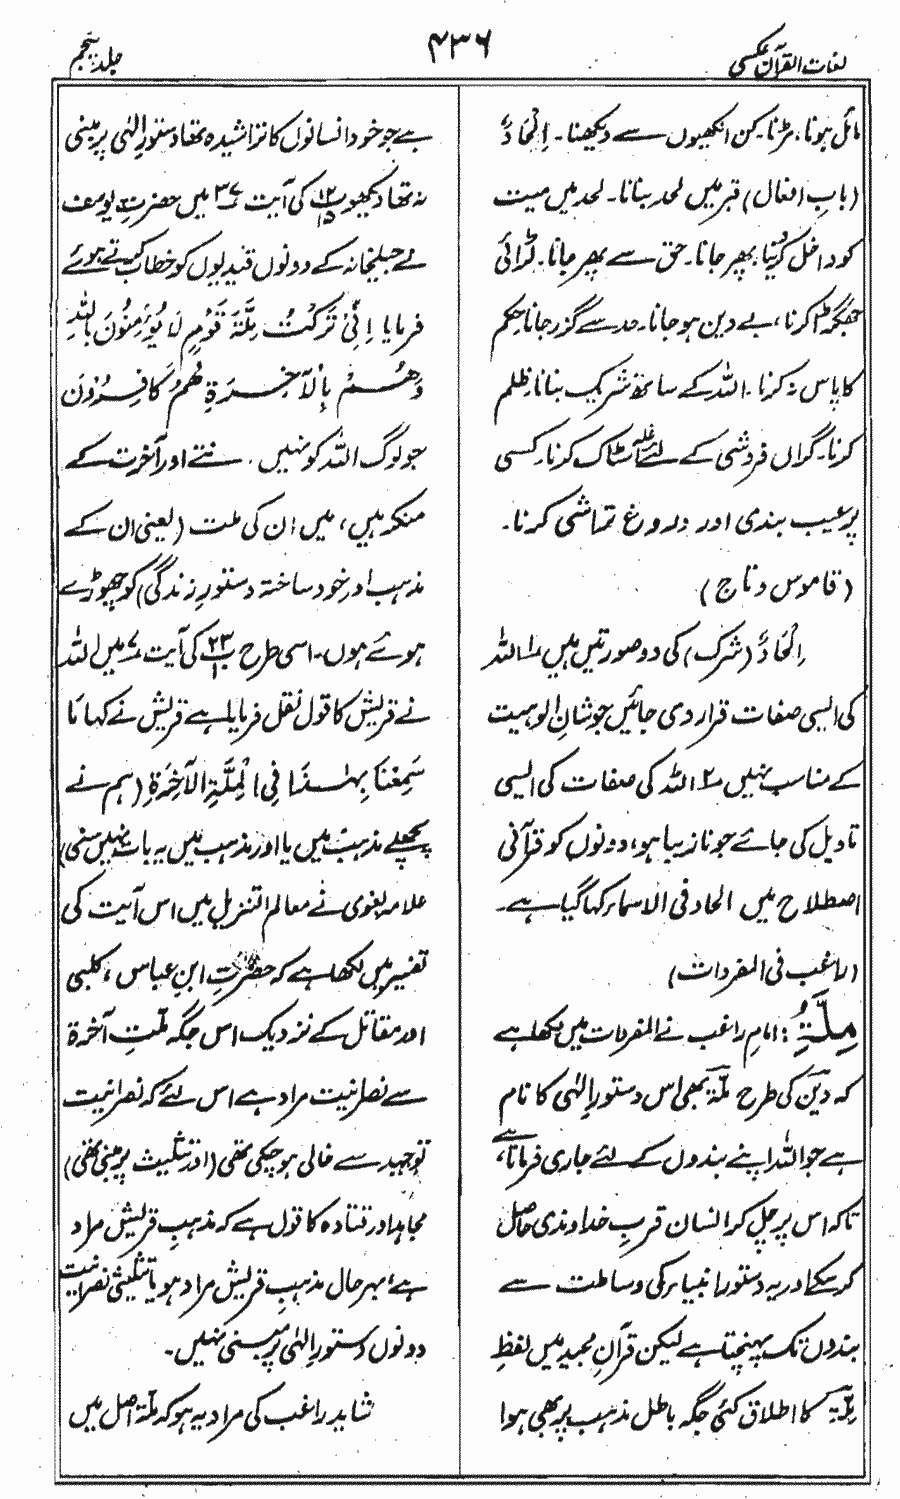 لغات القرآن عکسی
۴۳۶
جلد پنجم
مائل ہونا۔ مڑنا۔ کن انکھیوں سے دیکھنا۔ اِلْحَادٌ
(بابِ افعال) قبر میں لحد بنانا۔ لحد میں میت
کو داخل کرنا۔ پھر جانا۔ حق سے پھر جانا۔ لڑائی
جھگڑا کرنا، بے دین ہو جانا۔ حد سے گزر جانا حکم
کا پاس نہ کرنا۔ اللہ کے ساتھ شریک بنانا۔ ظلم
کرنا۔ گراں فروشی کے لئے غلہ اسٹاک کرنا۔ کسی
پر عیب بندی اور دروغ تراشی کرنا۔
(قاموس و تاج)
اِلْحَادٌ (شرک) کی دو صورتیں ہیں ۱ اللہ
کی ایسی صفات قرار دی جائیں جو شانِ الوہیت
کے مناسب نہیں ۲ اللہ کی صفات کی ایسی
تاویل کی جائے جو نازیبا ہو، دونوں کو قرآنی
اصطلاح میں الحاد فی الاسماء کہا گیا ہے۔
(راغب فی المفردات)
مِلَّۃِ: امامِ راغب نے المفردات میں لکھا ہے
کہ دین کی طرح ملۃ بھی اس دستورِ اِلٰہی کا نام
ہے جو اللہ اپنے بندوں کے لئے جاری فرماتا ہے،
تاکہ اس پر چل کر انسان قربِ خداوندی حاصل
کر سکے اور یہ دستور انبیاء کی وساطت سے
بندوں تک پہنچتا ہے لیکن قرآنِ مجید میں لفظِ
مِلَّۃ کا اطلاق کئی جگہ باطل مذہب پر بھی ہوا
ہے جو خود انسانوں کا تراشیدہ تھا دستورِ اِلٰہی پر مبنی
نہ تھا دیکھو پ ۱۲ ۱۵ کی آیت ۳۷ میں حضرت یوسف
نے جیلخانہ کے دونوں قیدیوں کو خطاب کرتے ہوئے
فرمایا اِنِّیْ تَرَکْتُ مِلَّۃَ قَوْمٍ لَّا یُؤْمِنُوْنَ بِاللّٰہِ
وَھُمْ بِالْاٰخِرَۃِ ھُمْ کَافِرُوْنَ
جو لوگ اللہ کو نہیں مانتے اور آخرت کے
منکر ہیں، میں ان کی ملت (یعنی ان کے
مذہب اور خود ساختہ دستورِ زندگی) کو چھوڑے
ہوئے ہوں۔ اسی طرح پ ۲۳ ۱۰ کی آیت ۷ میں اللہ
نے قریش کا قول نقل فرمایا ہے قریش نے کہا مَا
سَمِعْنَا بِھٰذَا فِی الْمِلَّۃِ الْاٰخِرَۃِ (ہم نے
پچھلے مذہب میں یا اور مذہب میں یہ بات نہیں سنی)
علامہ بغوی نے معالم التنزیل میں اس آیت کی
تفسیر میں لکھا ہے کہ حضرتِ ابنِ عباس، کلبی
اور مقاتل کے نزدیک اس جگہ ملّتِ آخرۃ
سے نصرانیت مراد ہے اس لئے کہ نصرانیت
توحید سے خالی ہو چکی تھی (اور تثلیث پر مبنی تھی)
مجاہد اور قتادہ کا قول ہے کہ مذہبِ قریش مراد
ہے، بہر حال مذہبِ قریش مراد ہو یا تثلیثی نصرانیت
دونوں دستورِ اِلٰہی پر مبنی نہیں۔
شاید راغب کی مراد یہ ہو کہ ملّۃ اصل میں